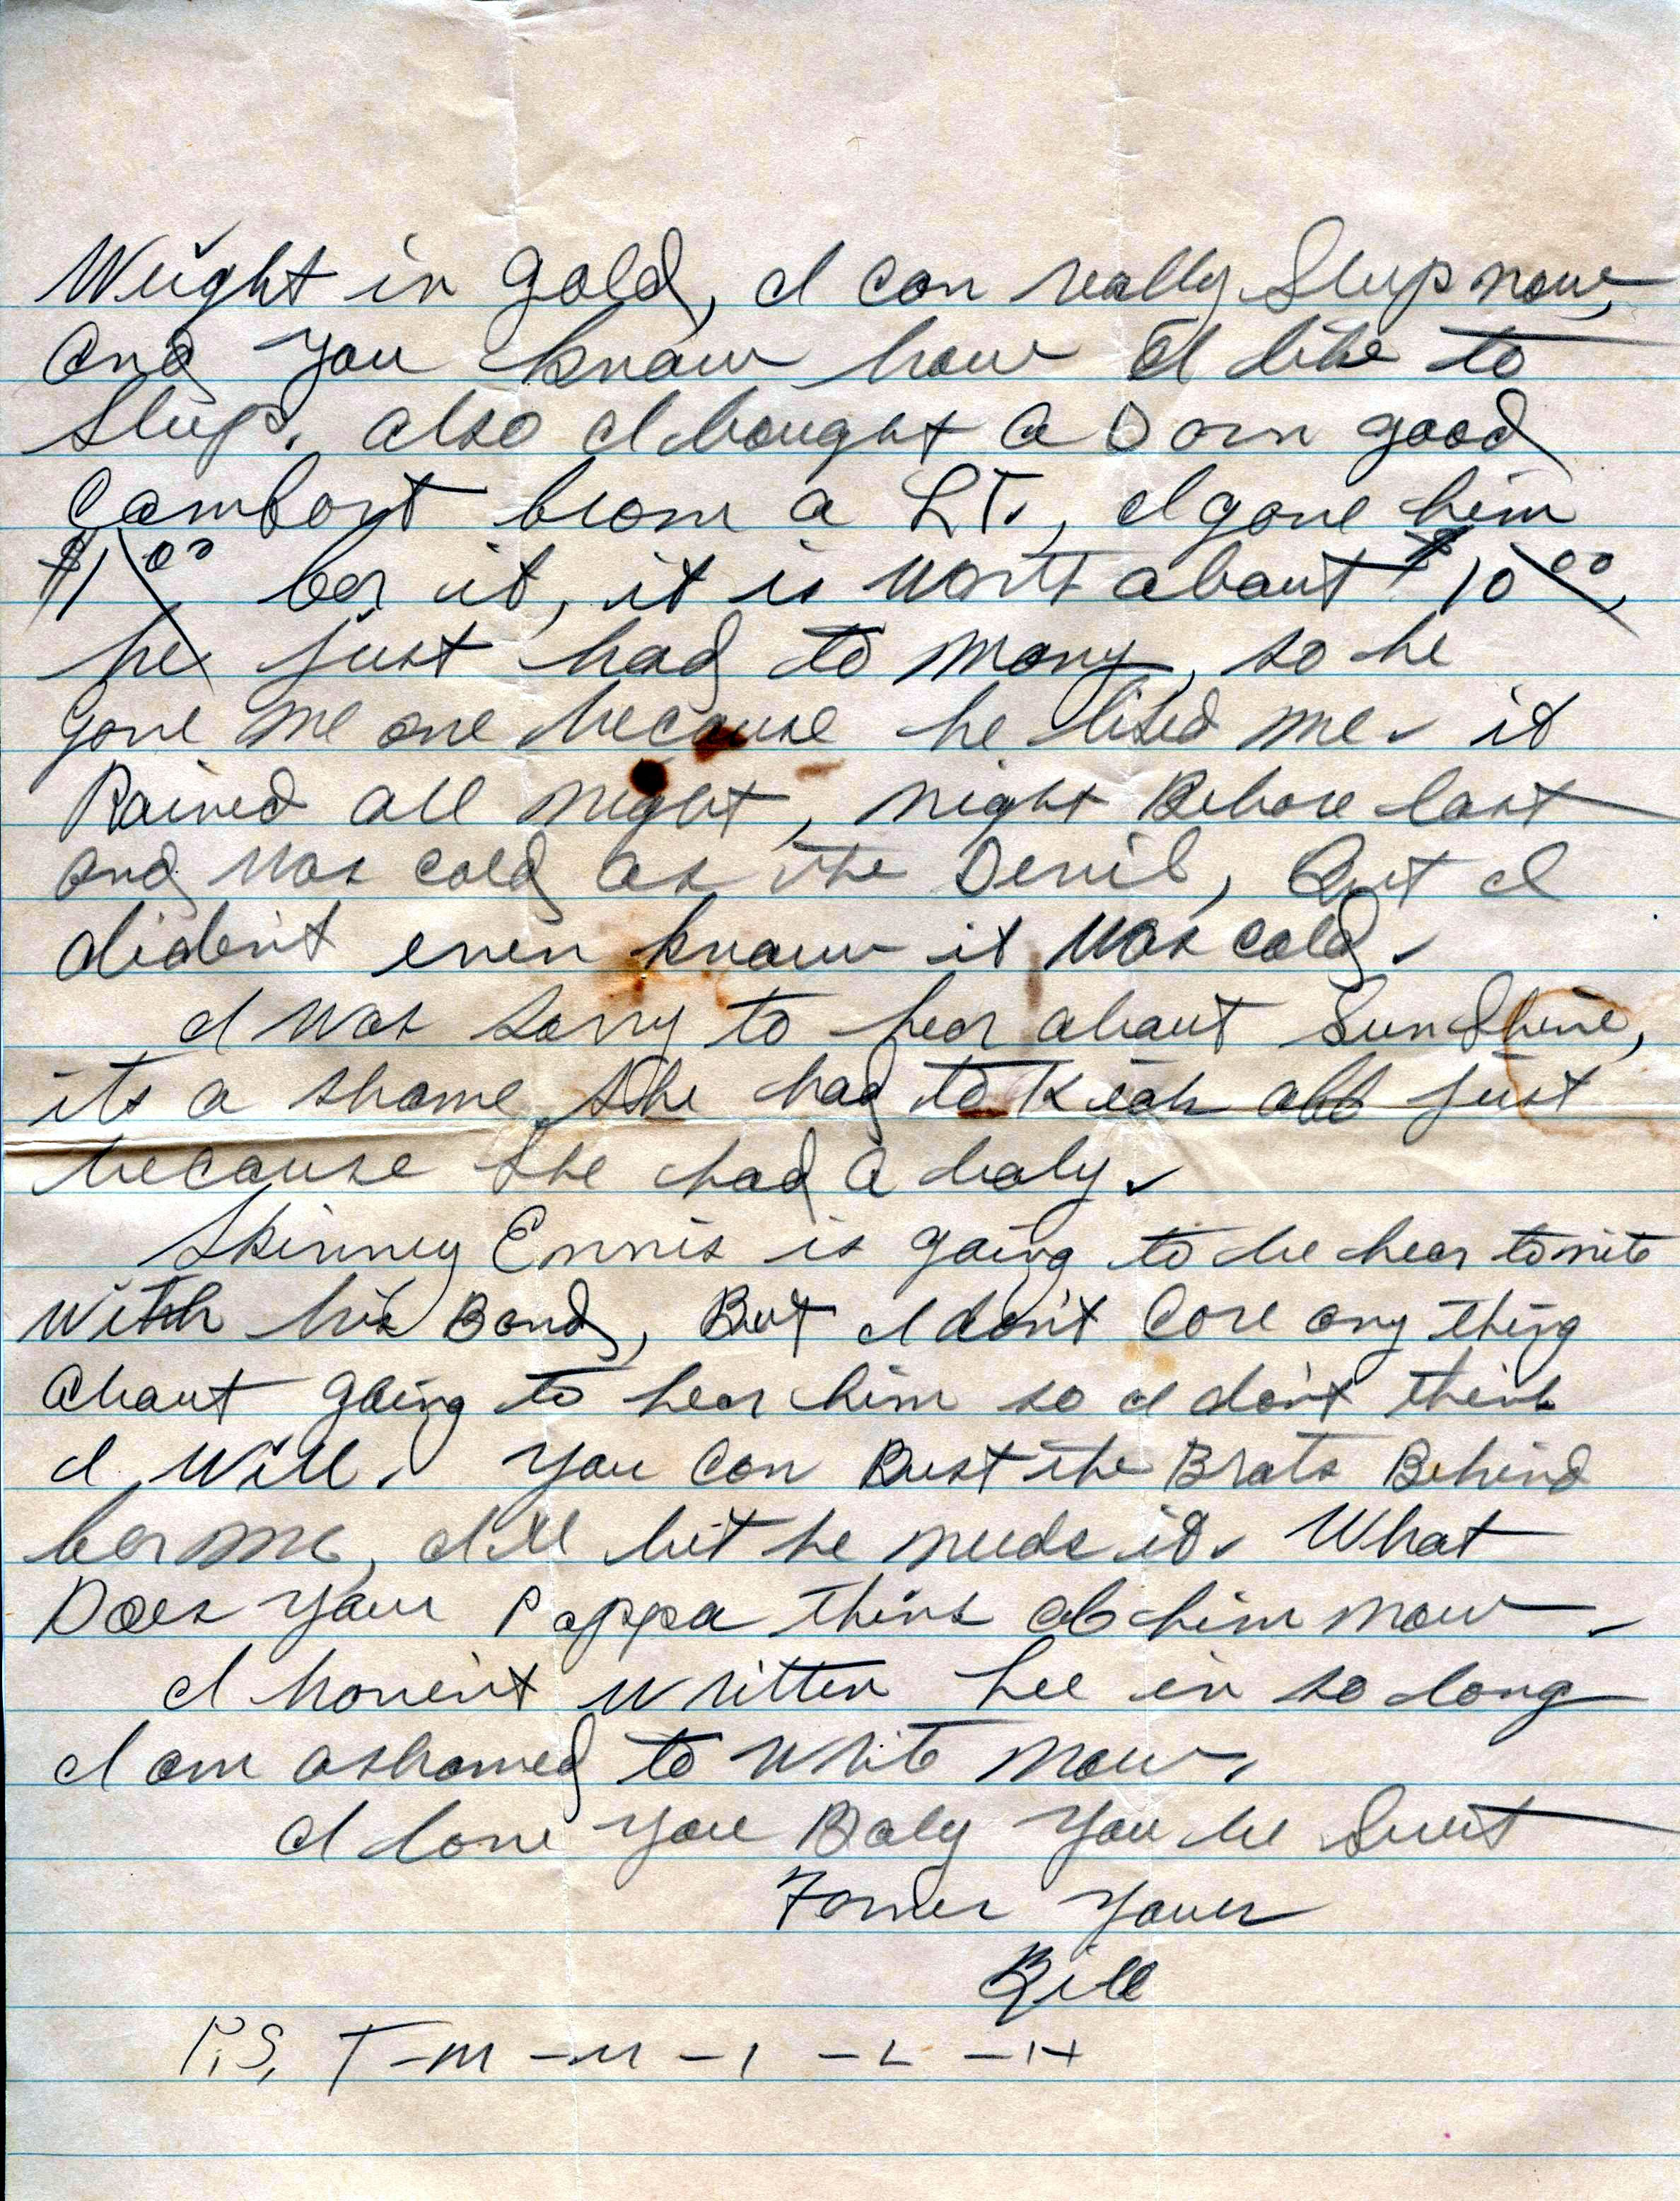 Weight in gold, I can really Sleep now,
and you know how I like to
Sleep. also I bought a Darn good
Comfort from a LT., I gave him
$1.00 for it, it is worth about $10.00,
he just had to many, so he
gave me one because he liked me. it
Rained all night, night Before last
and was cold as the Devil, But I
dident even know it was cold.
I was sorry to hear about SunShine,
its a shame she had to Kick off just
because she had a baby.
Skinney Ennis is going to be hear tonite
with his Band, But I don't Care any thing
about going to hear him so I don't think
I will. You Can Bust the Brats Behind
for me, I'll bet he needs it. What
Does your Pappa think of him now.
I haven't written Lee in so long
I am ashamed to write now.
I love you Baby You be Sweet
Forever Yours
Bill
P.S. T-M-M-I-L-H